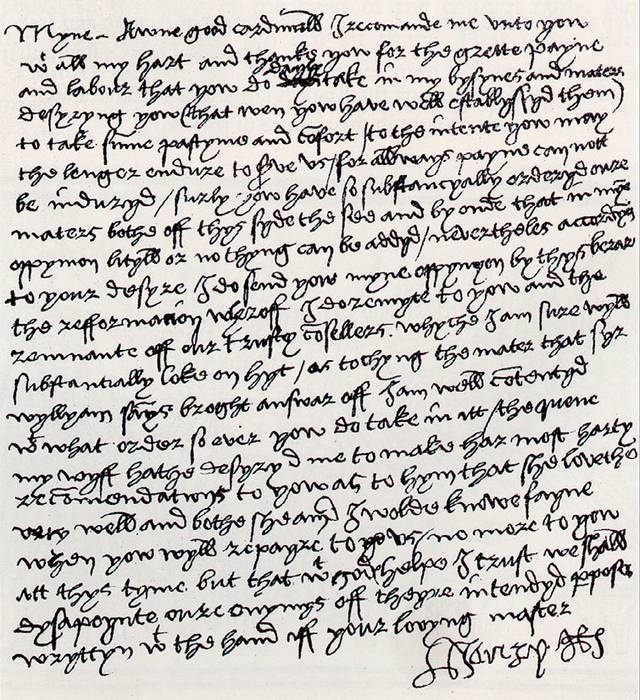 Myne Awne good cardinall I recomande me unto yow
wt all my hart and thanke yow for the grette payne
and labour that yow do dayly take in my bysynes and maters
desyryng yow (that wen yow have well establyssyd them)
to take summe pastyme and cōfort / to the intente yow may
the lenger endure to sarve us / for allways payne can nott
be induryd / surly yow have so substancyally orderyd oure
maters bothe off thys syde the see and byonde that in myne
oppynion lityll or no thyng can be addyd / nevertheles accordyng
to your desyre I do send yow myne oppynyon by thys berar
the refformacion wheroff I do remyte to yow and the
remnante off our trusty cōsellers whyche I am sure wyll
substantially loke on hyt / as tochyng the mater that syr
wyllyam sayys broght answar off I am well cōtentyd
wt what order so ever yow do take in itt / the quene
my wyff hathe desyryd me to make har most harty
recōmendations to yow as to hym that she lovethe
very well and bothe she and I wolde knowe fayne
when yow wyll repayre to us / no more to yow
att thys tyme but that wt god helpe I trust we shall
dysapoynte oure enymys off theyre intendyd pposse
wryttyn wt the hand off your lovyng master
Henry R